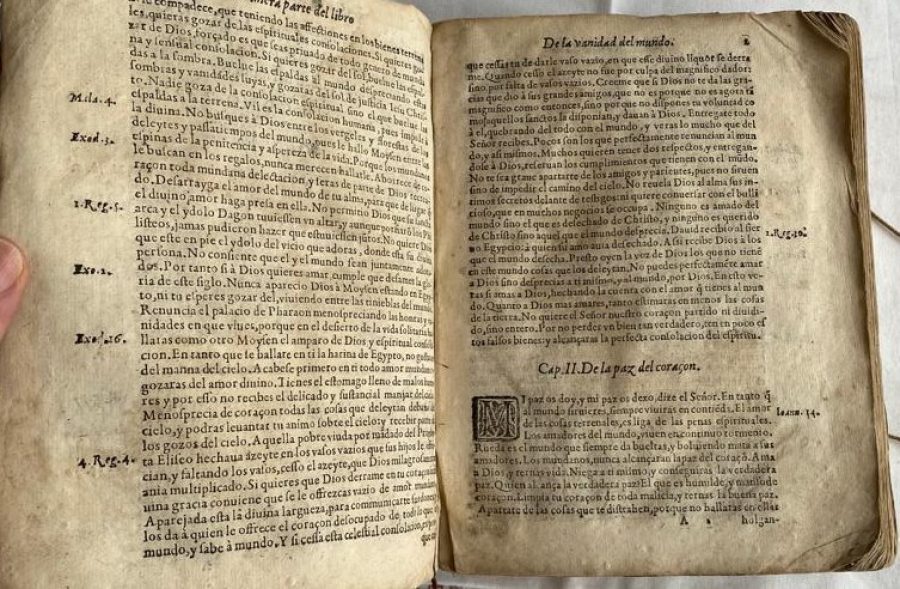 Primera parte del libro
se compadece, que teniendo las affectiones en los bienes terrena
les, quieras gozar de las espirituales consolaciones. Si quieres go
zar de Dios, forçado es que seas priuado de todo genero de mũda
na y sensual consolacion. Si quieres gozar del sol, buelue las espal
das a la sombra. Buelue las espaldas al mundo despreciando esta
sombras y vanidades suyas, y gozaras del sol de justicia Iesu Chris
to. Nadie goza de la consolacion espiritual, sino el que buelue las
espaldas a la terrena. Vil es la consolacion humana, pues impide la
la diuina. No busques à Dios entre los vergeles y florestas de los
deleytes y passatiempos del mundo, pues le hallo Moysen entre las
espinas de la penitencia y aspereza de la vida. Porque los mundanos
le buscan en los regalos, nunca merecen hallarle. Aborrece de co-
raçon toda mundana delectacion, y seras de parte de Dios recrea
do. Desarrayga el amor del mundo de tu alma, para que de lugar q̃
el diuino amor haga presa en ella. No permitio Dios que su sancta
arca y el ydolo Dagon tuuiessen vn altar, y aunque porfiarõ los Phi
listeos, jamas pudieron hazer que estuuiessen jũtos. No quiere Dios
que este en pie el ydolo del vicio que adoras, donde esta su diuina
persona. No consiente que el y el mundo sean juntamente adora-
dos. Por tanto si à Dios quieres amar, cumple que desames la glo-
ria de este siglo. Nunca aparecio Dios à Moysen estando en Egyp-
to, ni tu esperes gozar del, viuiendo entre las tinieblas del mundo.
Renuncia el palacio de Pharaon menospreciando las honras y va
nidades en que viues, porque en el desierto de la vida solitaria ha-
llaras como otro Moysen el amparo de Dios y espiritual consola
cion. En tanto que se hallare en ti la harina de Egypto, no gustaras
del manna del cielo. Acabese primero en ti todo amor mundano y
gozaras del amor diuino. Tienes el estomago lleno de malos humo
res y por esso no recibes el delicado y sustancial manjar del cielo.
Menosprecia de coraçon todas las cosas que deleytan debaxo del
cielo, y podras leuantar tu animo sobre el cielo y recebir parte de
los gozos del cielo. Aquella pobre viuda por mãdado del Prophe
ta Eliseo hechaua àzeyte en los vasos vazios que sus hijos le ofre-
cian, y faltando los vasos, cesso el azeyte, que Dios milagrosamente
auia multiplicado. Si quieres que Dios derrame en tu coraçon al-
una gracia conuiene que se le offrezcas vazio de amor mundano.
Aparejada esta la diuina largueza, para communicarte sus dones, y
los da à quien le offrece el coraçon desocupado de todo lo que es
mundo, y sabe à mundo. Y si cessa esta celestial consolacion, es por
que no
Mala. 4.
Exod. 3.
1. Reg. 5.
Exo. 2.
Exod. 16.
4. Reg. 4.
De la vanidad del mundo. 2
que cessas tu de darle vaso vazio, en que esse diuino liquor se derra
me. Quando cesso el azeyte no fue por culpa del magnifico dador:
sino por falta de vasos vazios. Creeme que si Dios no te da las gra-
cias que dio à sus grandes amigos, que no es porque no es agora tã
magnifico como entonces, sino por que no dispones tu voluntad co
mo aquellos sanctos la disponian, y dauan à Dios. Entregate todo
à el, quebrando del todo con el mundo, y veras lo mucho que del
Señor recibes. Pocos son los que perfectamente renuncian al mun
do, y asi mismos. Muchos quieren tener dos respectos, y entregan-
dose à Dios, reseruan los cumplimientos que tienen con el mũdo.
No te sea graue apartarte de los amigos y parientes, pues no siruen
sino de impedir el camino del cielo. No reuela Dios al alma sus in-
timos secretos delante de testigos: ni quiere conuersar con el bulli
cioso, que en muchos negocios se occupa. Ninguno es amado del
mundo sino el que es desechado de Christo, y ninguno es querido
de Christo sino aquel que el mundo desprecia. Dauid recibio al sier
uo Egypcio: à quien su amo auia desechado. Assi recibe Dios à los
que el mundo desecha. Presto oyen la voz de Dios los que no tienẽ
en este mundo cosas que los deleytan. No puedes perfectamẽte amar
a Dios sino desprecias a ti mismo, y al mundo, por Dios. En esto ve-
ras si amas a Dios, hechando la cuenta con el amor q̃ tienes al mun
do. Quanto a Dios mas amares, tanto estimaras en menos las cosas
de la tierra. No quiere el Señor nuestro coraçon partido ni diuidi-
do, sino entero. Por no perder vn bien tan verdadero, ten en poco es
tos falsos bienes: y alcançaras la perfecta consolacion del espiritu.
1. Reg. 30.
Cap. II. De la paz del coraçon.
MI paz os doy, y mi paz os dexo, dize el Señor. En tanto q̃
al mundo siruieres, siempre viuiras en contiẽdas. El amor
de las cosas terrenales, es liga de las penas espirituales.
Los amadores del mundo, viuen en continuo tormento.
Rueda es el mundo que siempre da bueltas, y boluiendo mata a sus
amadores. Los mundanos, nunca alcançaran la paz del coraçõ. Ama
a Dios, y ternas vida. Niega a ti mismo, y conseguiras la verdadera
paz. Quien alcança la verdadera paz? El que es humilde, y manso de
coraçon. Limpia tu coraçon de toda malicia, y ternas la buena paz.
Apartate de las cosas que te distrahen, porque no hallaras en ellas
A holgan-
Ioann. 14.